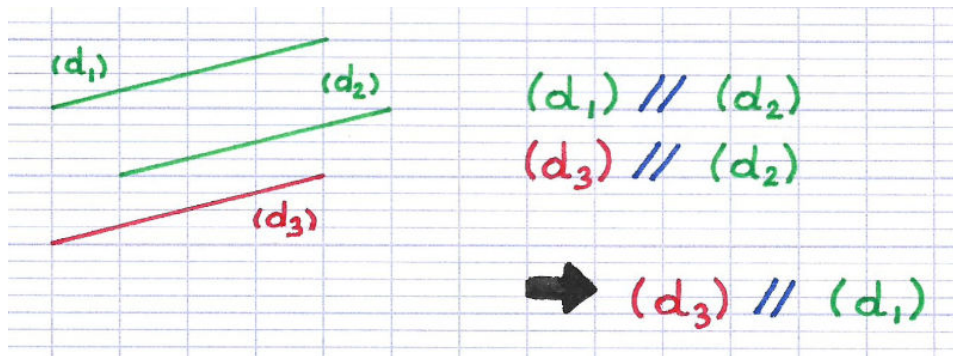 (d₁)
(d₂)
(d₃)
(d₁) // (d₂)
(d₃) // (d₂)
(d₃) // (d₁)